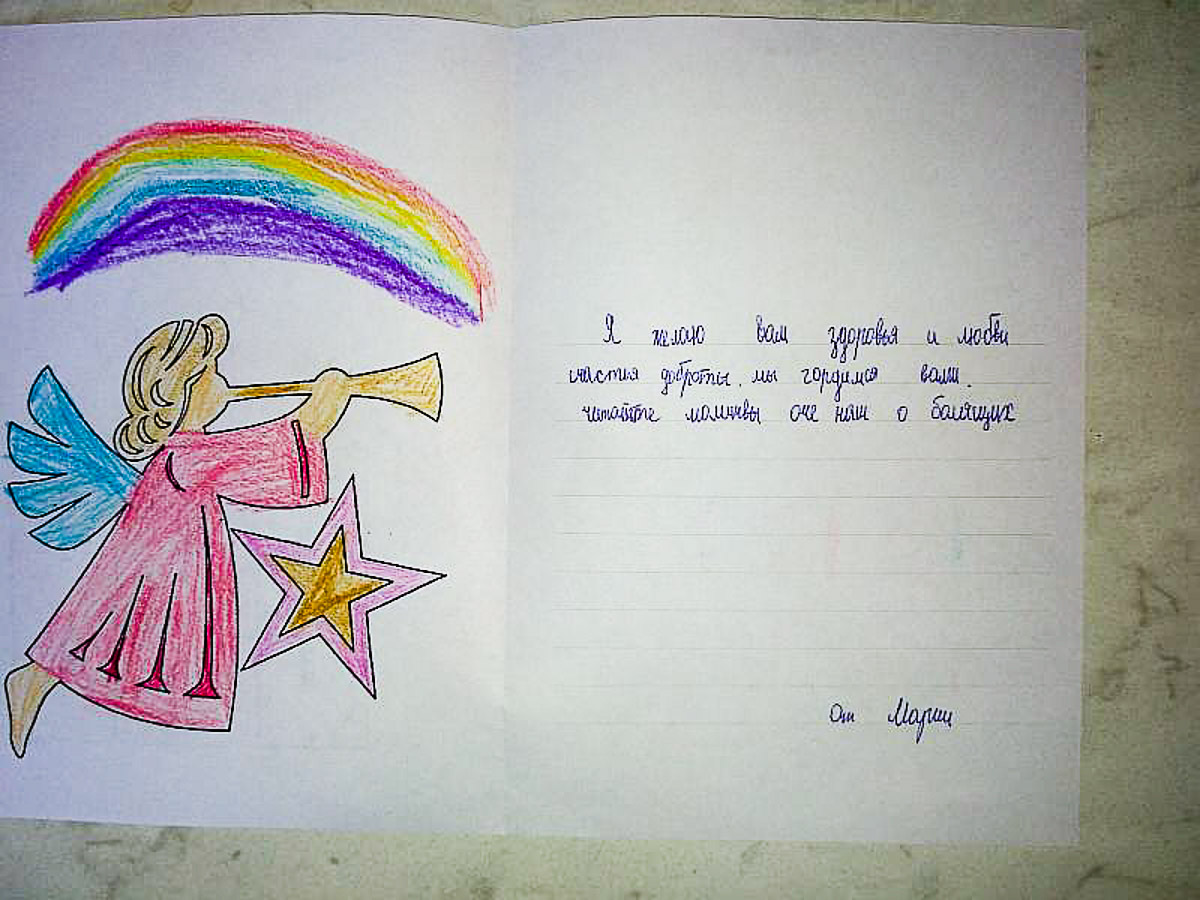 Я желаю вам здоровья и любви
счастья доброты. мы гордимся вами.
читайте молитвы оче наш о болящих
От Марии